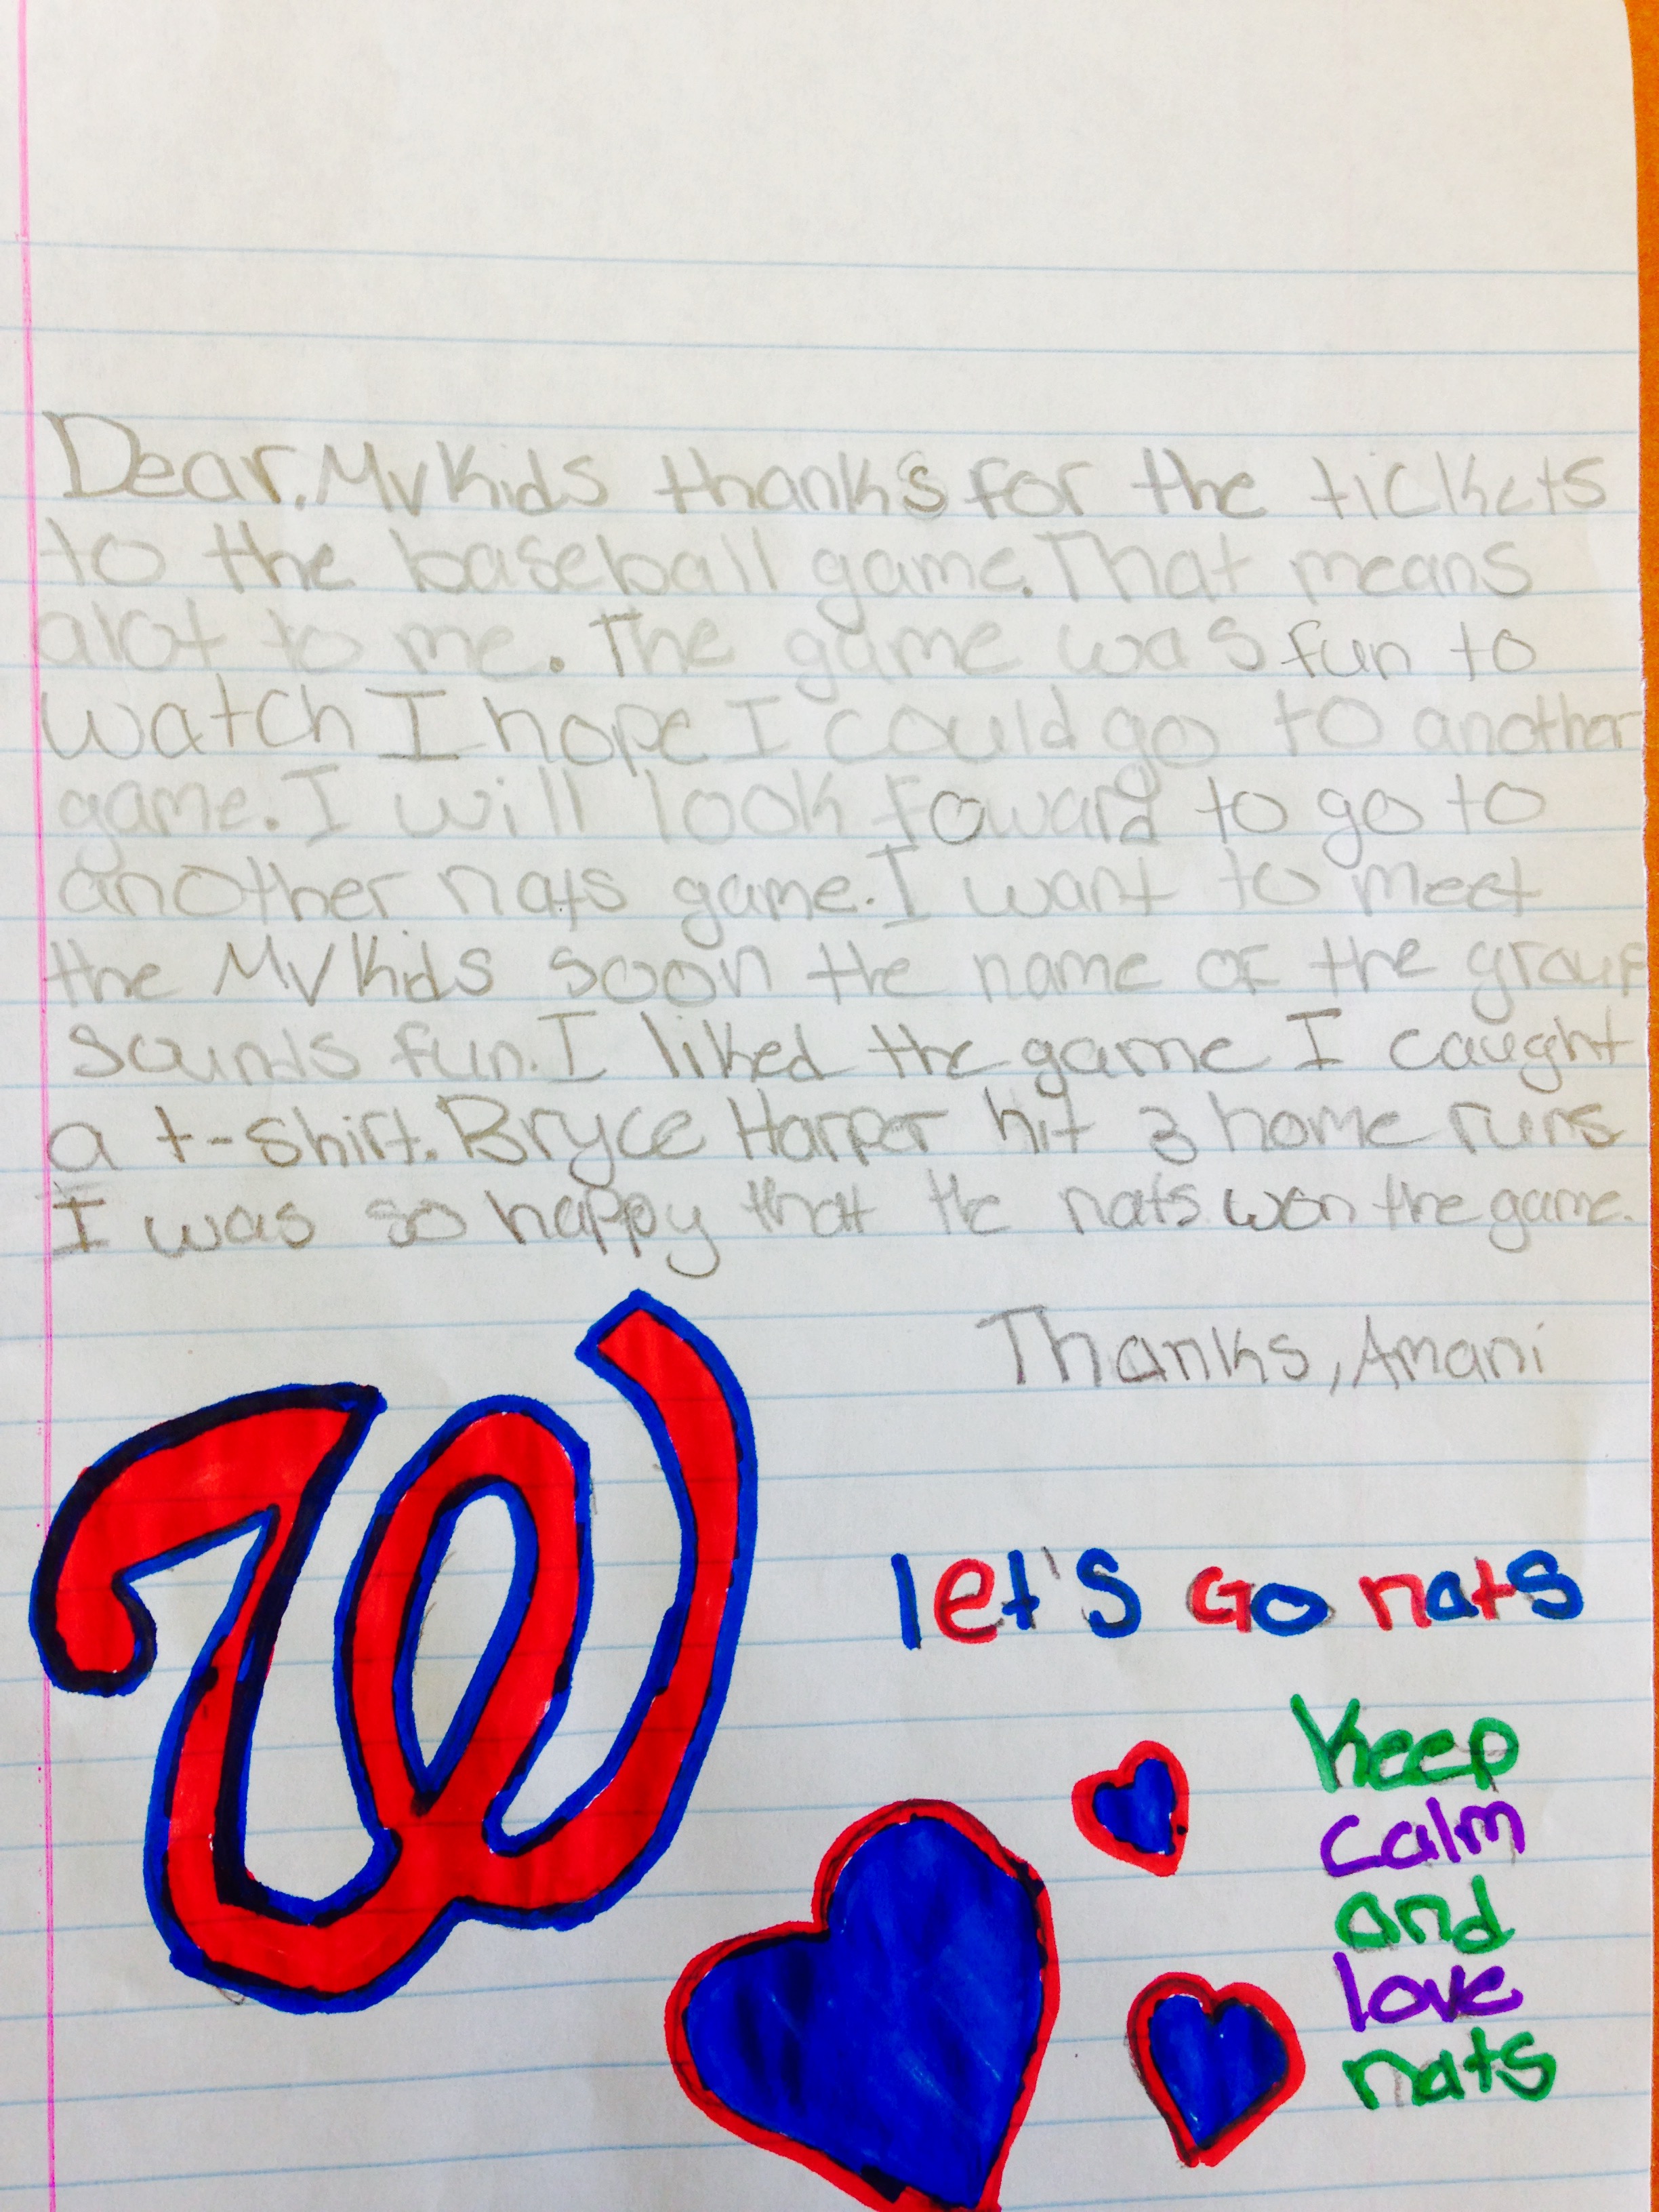 Dear. Mv Kids thanks for the tickets
to the baseball game. That means
alot to me. The game was fun to
watch I hope I could go to another
game. I will look foward to go to
another nats game. I want to meet
the Mv Kids soon the name of the group
sounds fun. I liked the game I caught
a t-shirt. Bryce Harper hit 3 home runs
I was so happy that the nats won the game.
Thanks, Amani
W
let's Go nats
Keep
calm
and
love
nats